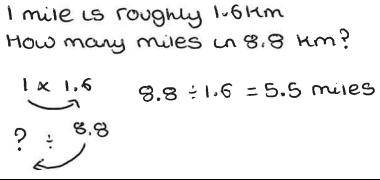 1 mile is roughly 1.6km
How many miles in 8.8 km?
1 x 1.6
8.8 ÷ 1.6 = 5.5 miles
? ÷ 8.8